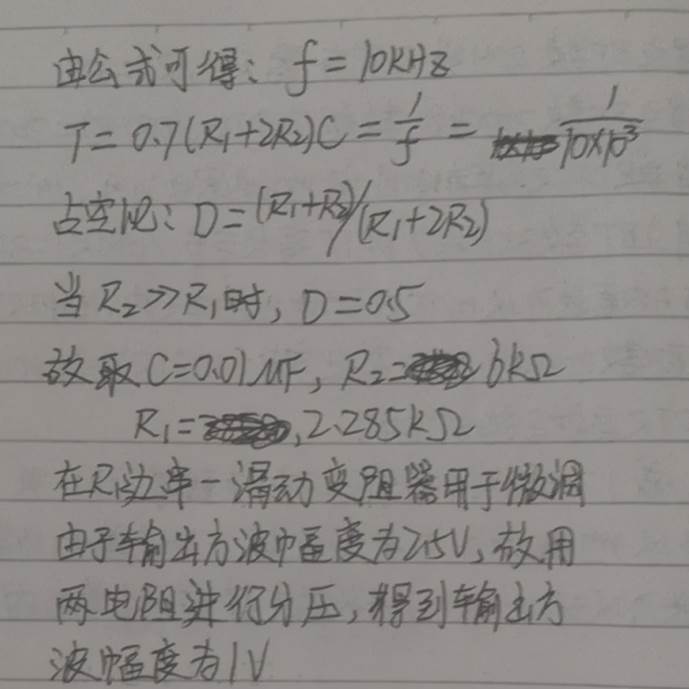 由公式可得: f=10kHz
T=0.7(R₁+2R₂)C=1/f=1/10×10³
占空比: D=(R₁+R₂)/(R₁+2R₂)
当R₂≫R₁时, D=0.5
故取C=0.01μF, R₂=6kΩ
R₁=2.285kΩ
在R₁边串一滑动变阻器用于微调
由于输出方波幅度为2.5V, 故用
两电阻进行分压, 得到输出方
波幅度为1V